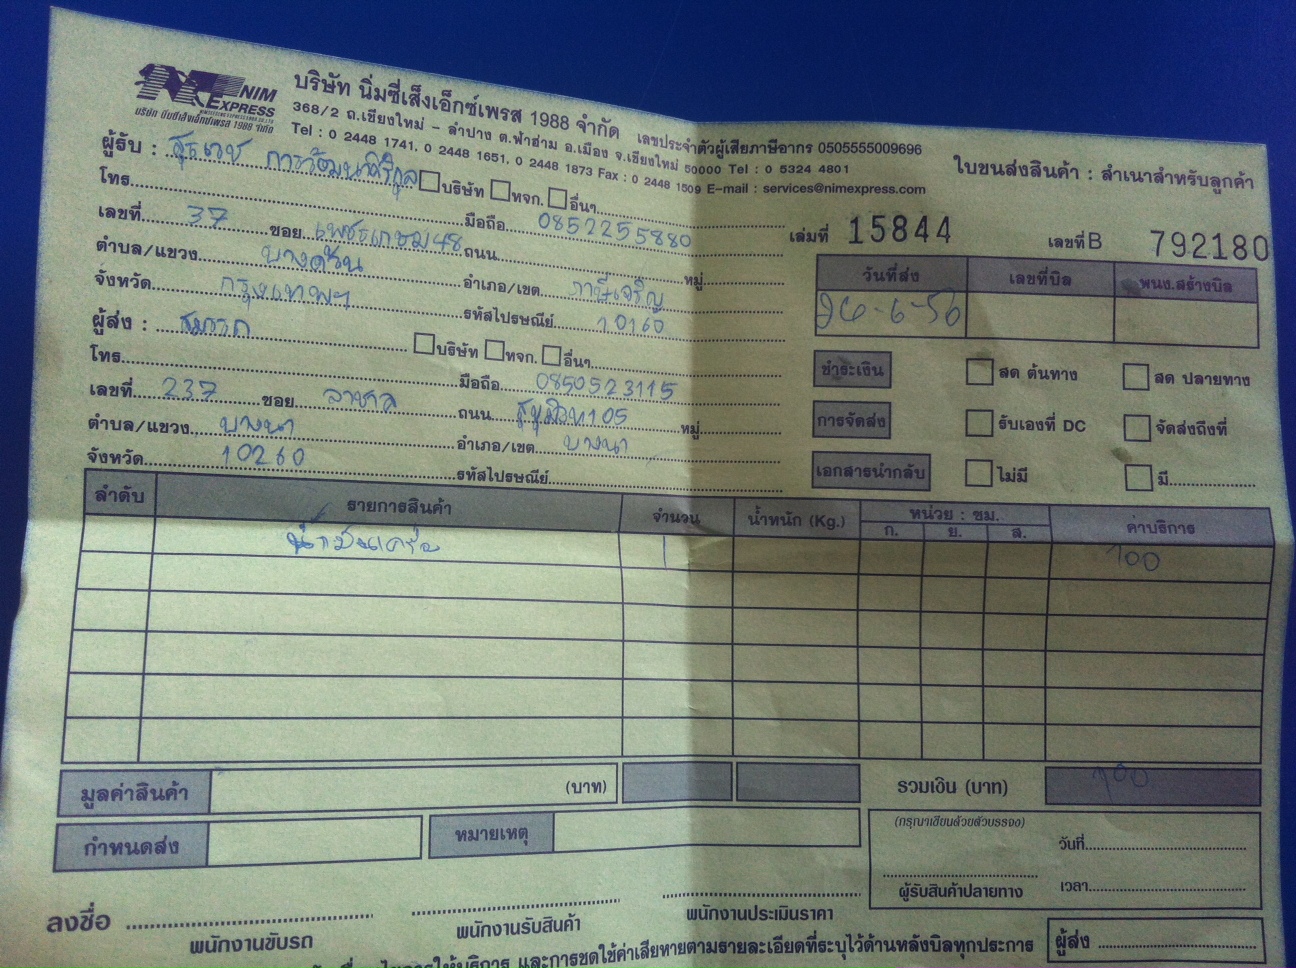 NIM EXPRESS
บริษัท นิ่มซี่เส็งเอ็กซ์เพรส 1988 จำกัด
บริษัท นิ่มซี่เส็งเอ็กซ์เพรส 1988 จำกัด เลขประจำตัวผู้เสียภาษีอากร 0505555009696
368/2 ถ.เชียงใหม่ - ลำปาง ต.ฟ้าฮ่าม อ.เมือง จ.เชียงใหม่ 50000 Tel : 0 5324 4801
Tel : 0 2448 1741, 0 2448 1651, 0 2448 1873 Fax : 0 2448 1509 E-mail : services@nimexpress.com
ใบขนส่งสินค้า : สำเนาสำหรับลูกค้า
ผู้รับ : บริษัท หจก. อื่นๆ
โทร. มือถือ 0852255880
เล่มที่ 15844 เลขที่ B 792180
เลขที่ 37 ซอย เพชรเกษม48 ถนน หมู่
ตำบล/แขวง บางด้วน อำเภอ/เขต ภาษีเจริญ
จังหวัด กรุงเทพฯ รหัสไปรษณีย์ 10160
วันที่ส่ง เลขที่บิล พนง.สร้างบิล
26-6-56
ผู้ส่ง : บริษัท หจก. อื่นๆ
โทร. มือถือ 0850523115
เลขที่ 237 ซอย ลาซาล ถนน สุขุมวิท105 หมู่
ตำบล/แขวง บางนา อำเภอ/เขต บางนา
จังหวัด 10260 รหัสไปรษณีย์
ชำระเงิน สด ต้นทาง สด ปลายทาง
การจัดส่ง รับเองที่ DC จัดส่งถึงที่
เอกสารนำกลับ ไม่มี มี
ลำดับ รายการสินค้า จำนวน น้ำหนัก (Kg.) หน่วย : ซม. ค่าบริการ
ก. ย. ส.
น้ำมันเครื่อง 1 100
มูลค่าสินค้า (บาท) รวมเงิน (บาท) 100
กำหนดส่ง หมายเหตุ
(กรุณาเขียนด้วยตัวบรรจง)
วันที่
ผู้รับสินค้าปลายทาง เวลา
ลงชื่อ
พนักงานขับรถ พนักงานรับสินค้า พนักงานประเมินราคา
และการชดใช้ค่าเสียหายตามรายละเอียดที่ระบุไว้ด้านหลังบิลทุกประการ ผู้ส่ง